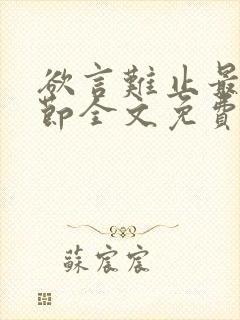 欲言難止最
節全文免費
蘇宸宸